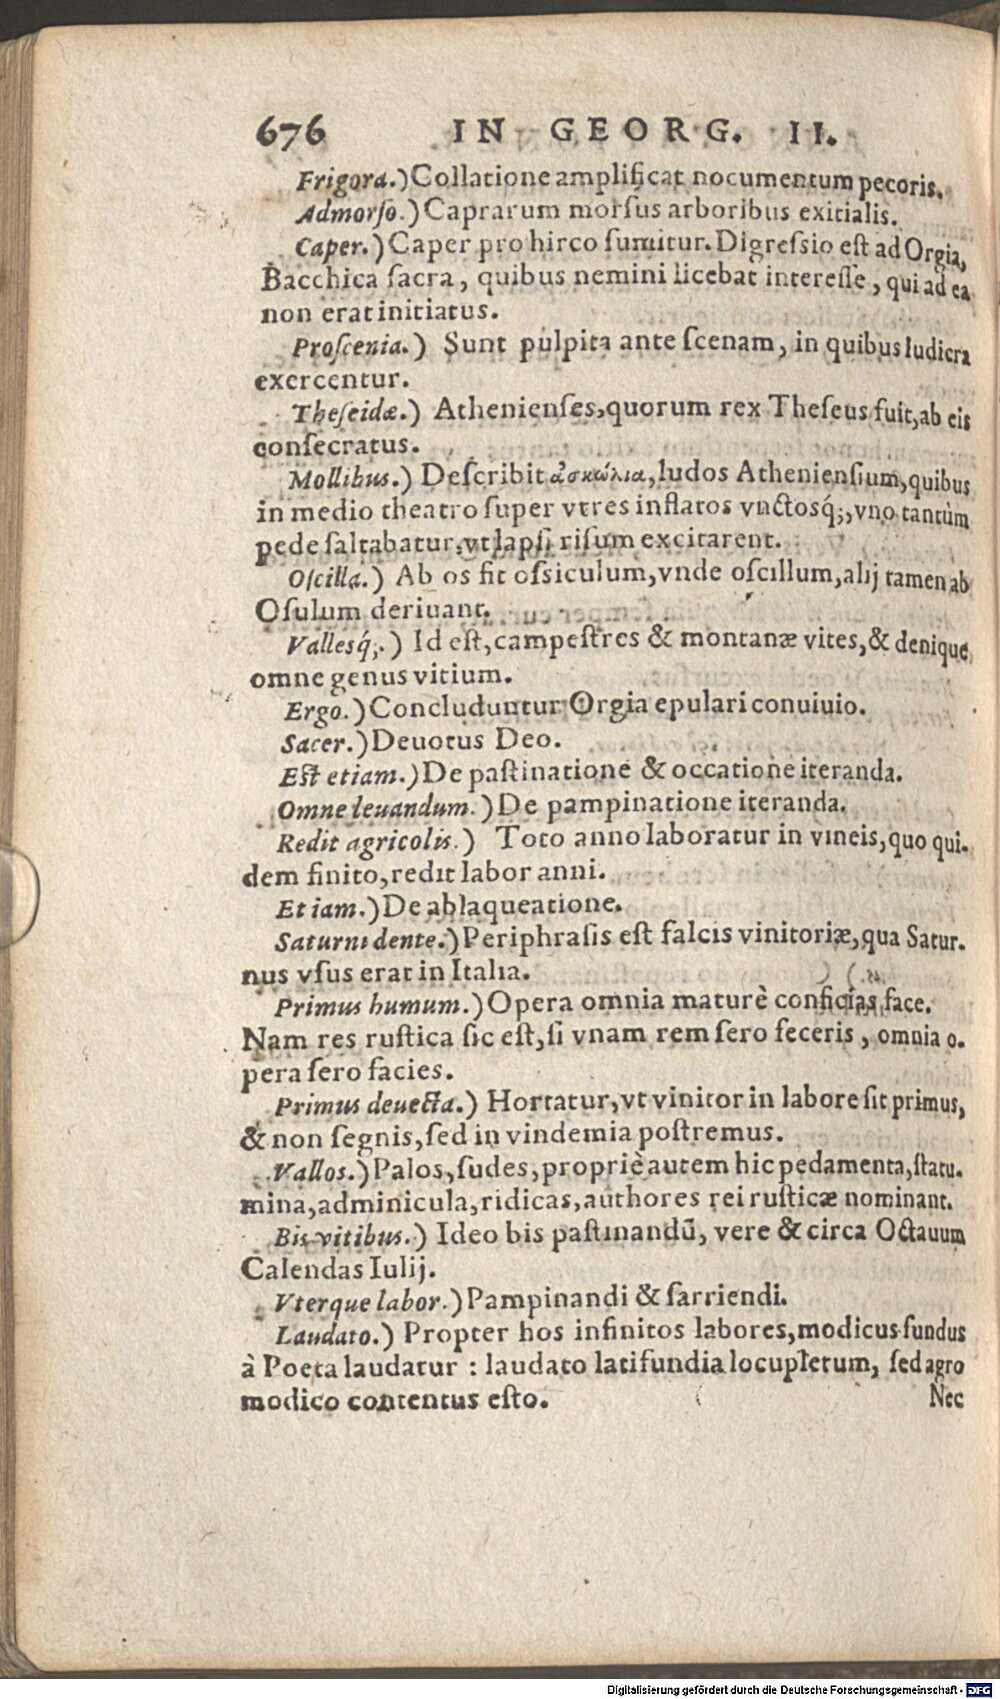 676 IN GEORG. II.
Frigora.) Collatione amplificat nocumentum pecoris.
Admorſo.) Caprarum morſus arboribus exitialis.
Caper.) Caper pro hirco ſumitur. Digreſsio eſt ad Orgia,
Bacchica ſacra, quibus nemini licebat intereſſe, qui ad ea
non erat initiatus.
Proſcenia.) Sunt pulpita ante ſcenam, in quibus ludicra
exercentur.
Theſeidæ.) Athenienſes, quorum rex Theſeus fuit, ab eis
conſecratus.
Mollibus.) Deſcribit ἀσκώλια, ludos Athenienſium, quibus
in medio theatro ſuper vtres inflatos vnctosq́;, vno tantùm
pede ſaltabatur, vt lapſi riſum excitarent.
Oſcilla.) Ab os fit oſsiculum, vnde oſcillum, alij tamen ab
Oſulum deriuant.
Vallesq́;.) Id eſt, campeſtres & montanæ vites, & denique
omne genus vitium.
Ergo.) Concluduntur Orgia epulari conuiuio.
Sacer.) Deuotus Deo.
Eſt etiam.) De paſtinatione & occatione iteranda.
Omne leuandum.) De pampinatione iteranda.
Redit agricolis.) Toto anno laboratur in vineis, quo qui-
dem finito, redit labor anni.
Et iam.) De ablaqueatione.
Saturni dente.) Periphraſis eſt falcis vinitoriæ, qua Satur-
nus vſus erat in Italia.
Primus humum.) Opera omnia maturè conficias face.
Nam res ruſtica ſic eſt, ſi vnam rem ſero feceris, omnia o-
pera ſero facies.
Primus deuecta.) Hortatur, vt vinitor in labore ſit primus,
& non ſegnis, ſed in vindemia poſtremus.
Vallos.) Palos, ſudes, propriè autem hic pedamenta, ſtatu-
mina, adminicula, ridicas, authores rei ruſticæ nominant.
Bis vitibus.) Ideo bis paſtinandū, vere & circa Octauum
Calendas Iulij.
Vterque labor.) Pampinandi & ſarriendi.
Laudato.) Propter hos infinitos labores, modicus fundus
à Poeta laudatur : laudato latifundia locupletum, ſed agro
modico contentus eſto.
Nec
Digitalisierung gefördert durch die Deutsche Forschungsgemeinschaft - DFG